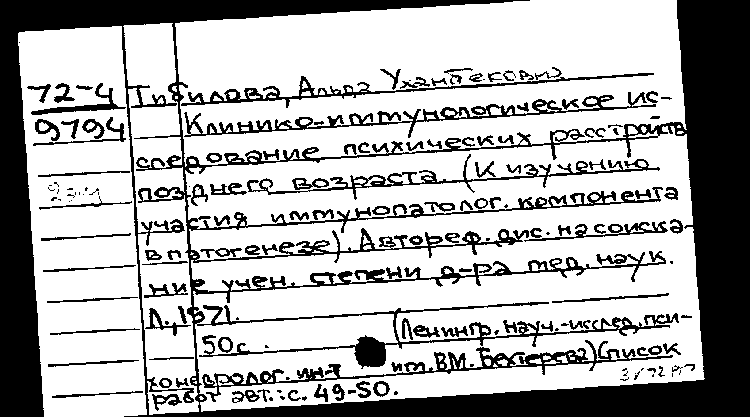 72-4 Тибилова, Альда Ухантековна
9794 Клинико-иммунологическое ис-
следование психических расстройств
позднего возраста. (К изучению
участия иммунопатолог. компонента
в патогенезе). Автореф. дис. на соиска-
ние учен. степени д-ра мед. наук.
Л., 1971.
50 с. (Ленингр. науч.-исслед. пси-
хоневролог. ин-т им. В.М. Бехтерева) (Список
работ авт.: с. 49-50.